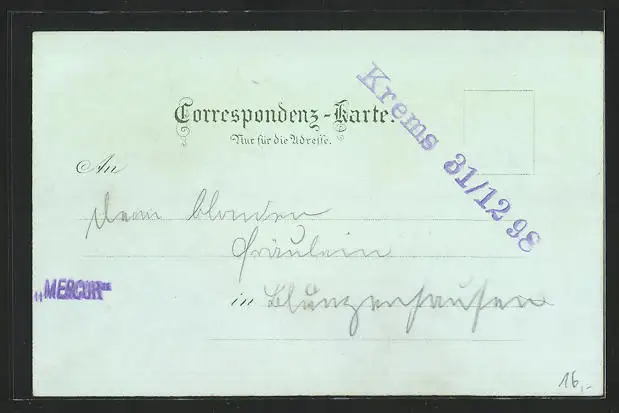 Correspondenz-Karte.
Nur für die Adresse.
Krems 31/12 98
An
dem blonden
Fräulein
"MERCUR"
in Blunzenhausen
16,-